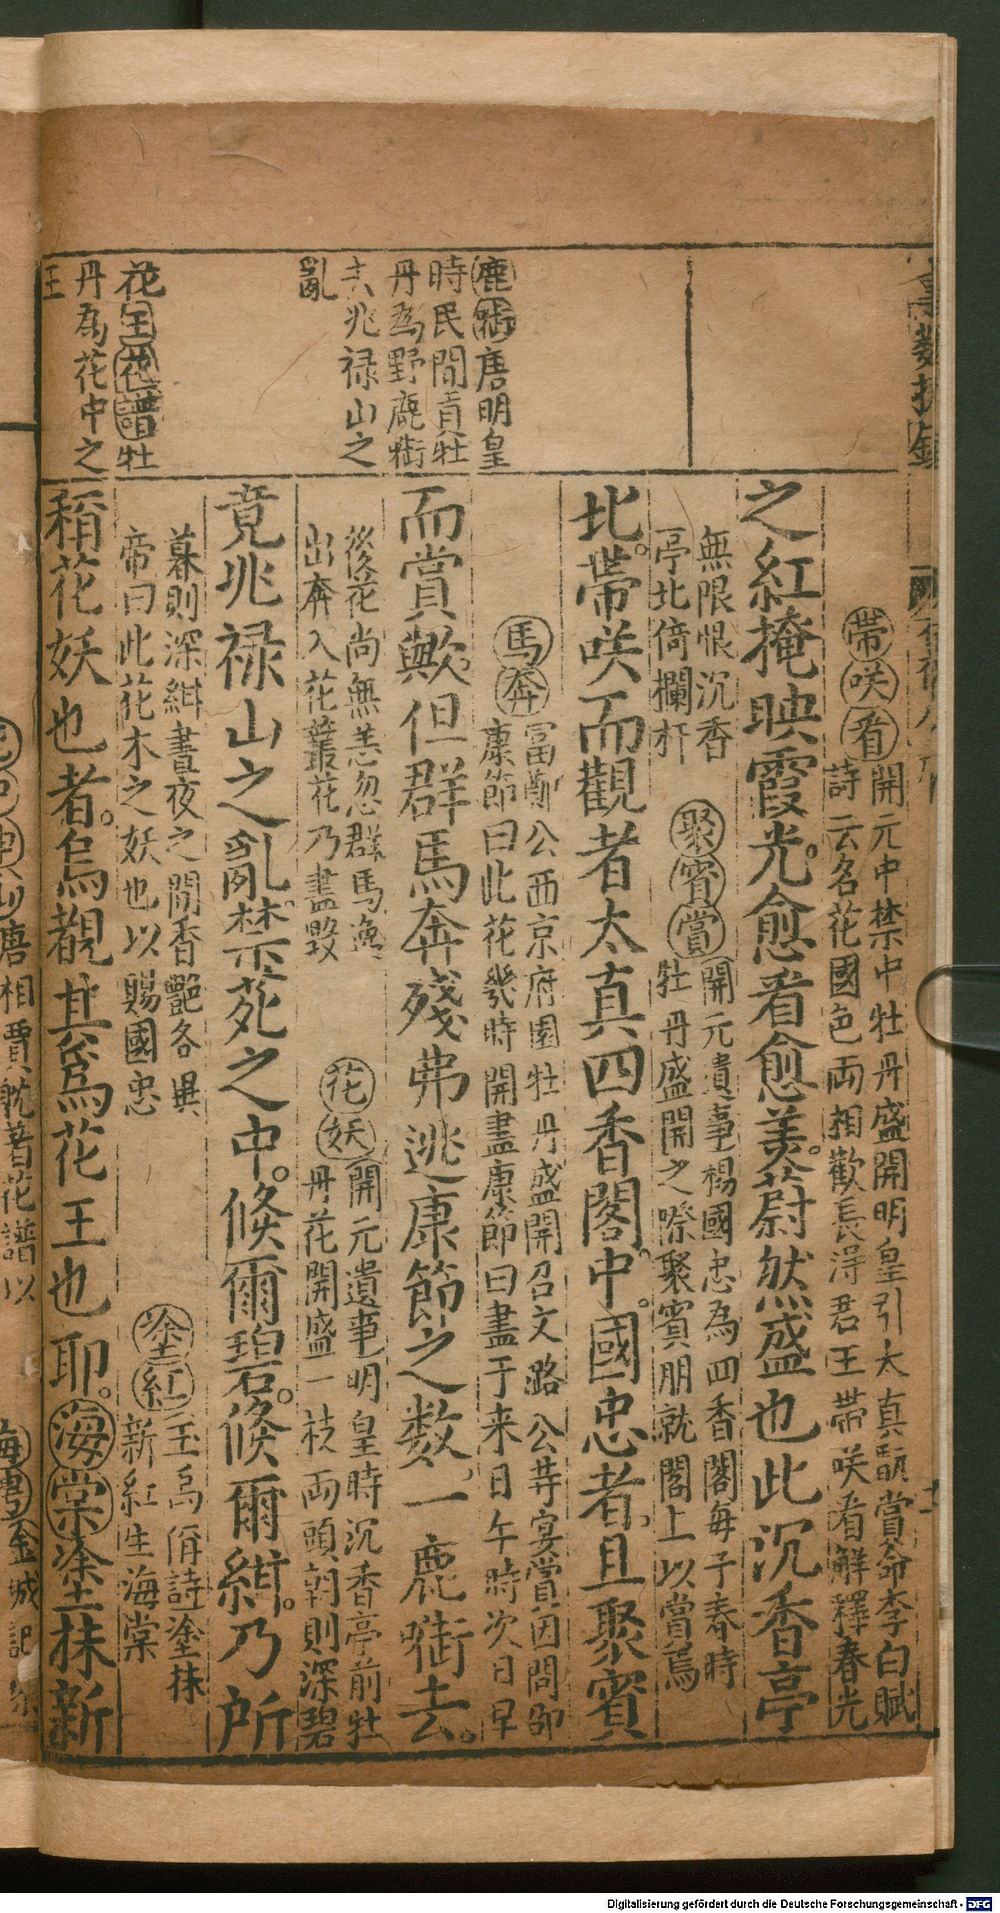 帶咲看開元中禁中牡丹盛開明皇引太真翫賞命李白賦
詩云名花國色両相歡長淂君王帶咲看解釋春光
之紅掩映霞光愈看愈美蔚然盛也此沉香亭
無限恨沉香
亭北倚欄杆
聚賓賞開元遺事楊國忠為四香閣每于春時
牡丹盛開之際聚賓朋就閣上以賞焉
比帶咲而觀者太真四香閣中國忠者且聚賓
馬奔富鄭公西京府園牡丹盛開召文潞公䓁宴賞因問邵
康節曰此花幾時開盡康節曰盡于来日午時次日早
而賞歟但群馬奔殘弗逃康節之数一鹿啣去
後花尚無恙忽群馬逸
出奔入花叢花乃盡毀
花妖開元遺事明皇時沉香亭前牡
丹花開盛一枝両頭朝則深碧
竟兆禄山之乱禁苑之中倐爾碧倐爾紺乃所
暮則深紺晝夜之間香艷各異
帝曰此花木之妖也以賜國忠
塗紅王禹偁詩塗抹
新紅生海棠
稱花妖也者烏覩其爲花王也耶海棠塗抹新
鹿啣唐明皇
時民間貢牡
丹為野鹿啣
去兆禄山之
亂
花王花譜牡
丹為花中之
王
唐相賈耽著花譜以
金城記
Digitalisierung gefördert durch die Deutsche Forschungsgemeinschaft - DFG